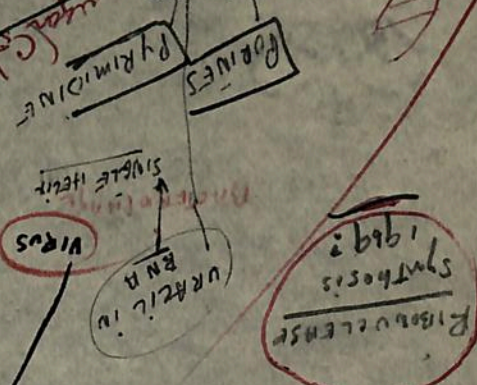 RIBONUCLEASE
Synthesis
1969?
URACIL IN
RNA
VIRUS
SINGLE HELIX
PURINES
PYRIMIDINE